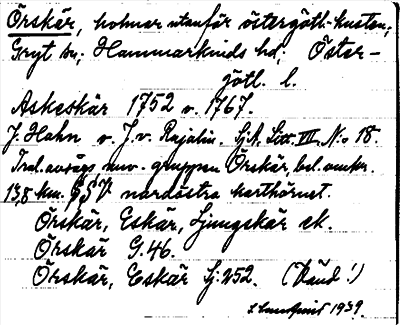 Örskär, holmar utanför östergötl.-kusten;
Gryt sn; Hammarkinds hd; Öster-
götl. l.
Askeskär 1752 o. 1767.
J. Hahn o. J. v. Rajalin. Sj.A. Litt. III. N:o 18.
Trol. avsågs nuv. gruppen Örskär, bel. omkr.
13,8 km. G S V nordöstra karthörnet.
Örskär, Eskär, Ljungskär ek.
Örskär G. 46.
Örskär, Eskär Sj: 252. (Känd!)
Lundqvist 1939.